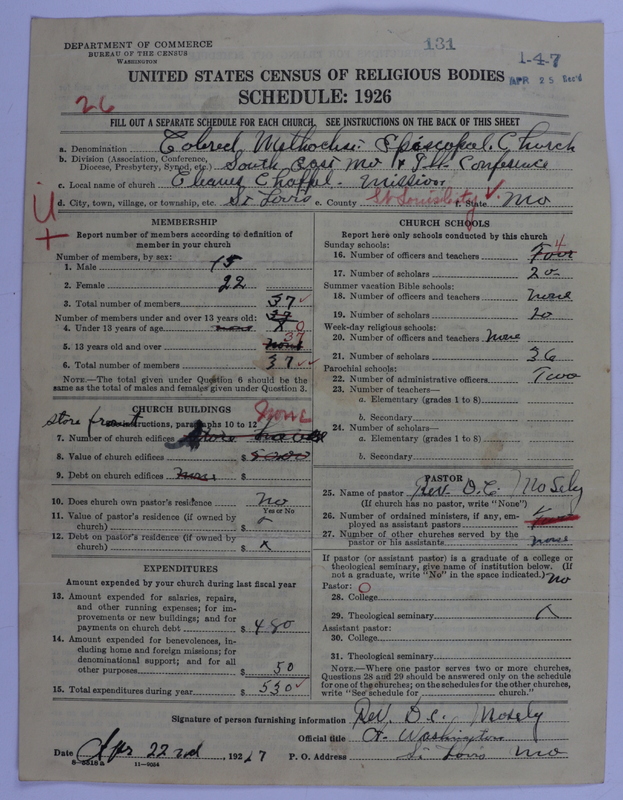 DEPARTMENT OF COMMERCE
BUREAU OF THE CENSUS
WASHINGTON
131
1-4-7
APR 25 Rec'd
UNITED STATES CENSUS OF RELIGIOUS BODIES
SCHEDULE: 1926
26
FILL OUT A SEPARATE SCHEDULE FOR EACH CHURCH. SEE INSTRUCTIONS ON THE BACK OF THIS SHEET
a. Denomination Colored Methodist Episcopal Church
b. Division (Association, Conference, Diocese, Presbytery, Synod, etc.) South East Mo & Ill. Conference
c. Local name of church Chappel. Mission
d. City, town, village, or township, etc. St Louis e. County St Louis City f. State Mo
MEMBERSHIP
Report number of members according to definition of
member in your church
Number of members, by sex:
1. Male 15
2. Female 22
3. Total number of members 37
Number of members under and over 13 years old:
4. Under 13 years of age none x 0
5. 13 years old and over none 37
6. Total number of members 37
NOTE.—The total given under Question 6 should be the
same as the total of males and females given under Question 3.
CHURCH BUILDINGS
store front
(See instructions, paragraphs 10 to 12
None
7. Number of church edifices
8. Value of church edifices $
9. Debt on church edifices None $
10. Does church own pastor's residence No
Yes or No
11. Value of pastor's residence (if owned by
church) $
12. Debt on pastor's residence (if owned by
church) $ x
EXPENDITURES
Amount expended by your church during last fiscal year
13. Amount expended for salaries, repairs,
and other running expenses; for im-
provements or new buildings; and for
payments on church debt $ 480
14. Amount expended for benevolences, in-
cluding home and foreign missions; for
denominational support; and for all
other purposes $ 50
15. Total expenditures during year $ 530
CHURCH SCHOOLS
Report here only schools conducted by this church
Sunday schools:
16. Number of officers and teachers Four 4
17. Number of scholars 20
Summer vacation Bible schools:
18. Number of officers and teachers none
19. Number of scholars 20
Week-day religious schools:
20. Number of officers and teachers none
21. Number of scholars 36
Parochial schools:
22. Number of administrative officers Two
23. Number of teachers—
a. Elementary (grades 1 to 8)
b. Secondary
24. Number of scholars—
a. Elementary (grades 1 to 8)
b. Secondary
PASTOR
25. Name of pastor Rev. D.C. Mosely
(If church has no pastor, write "None")
26. Number of ordained ministers, if any, em-
ployed as assistant pastors
27. Number of other churches served by the
pastor or his assistants none
If pastor (or assistant pastor) is a graduate of a college or
theological seminary, give name of institution below. (If
not a graduate, write "No" in the space indicated.) No
Pastor: 0
28. College
29. Theological seminary
Assistant pastor:
30. College
31. Theological seminary
NOTE.—Where one pastor serves two or more churches,
Questions 28 and 29 should be answered only on the schedule
for one of the churches; on the schedules for the other churches,
write "See schedule for church."
Signature of person furnishing information Rev. D.C. Mosely
Official title Washington
Date Apr 22nd, 1927 P. O. Address St. Louis Mo
8-5518a 11-9054